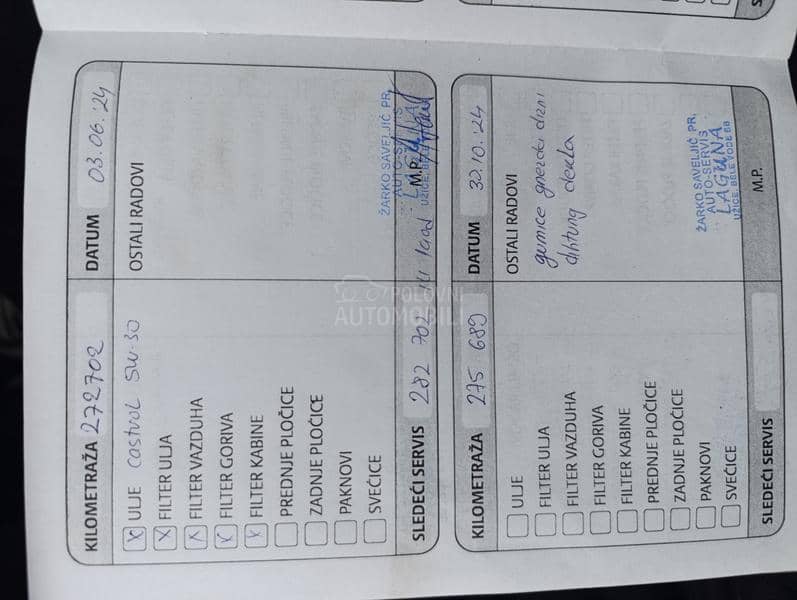 KILOMETRAŽA 272702 DATUM 03.06.24
X ULJE Castrol 5W-30
X FILTER ULJA
X FILTER VAZDUHA
X FILTER GORIVA
X FILTER KABINE
PREDNJE PLOČICE
ZADNJE PLOČICE
PAKNOVI
SVEČICE
OSTALI RADOVI
ŽARKO SAVELJIĆ PR,
AUTO-SERVIS
M.P.
SLEDEĆI SERVIS 282 702 ili 1 god
KILOMETRAŽA 275 689 DATUM 30.10.24
ULJE
FILTER ULJA
FILTER VAZDUHA
FILTER GORIVA
FILTER KABINE
PREDNJE PLOČICE
ZADNJE PLOČICE
PAKNOVI
SVEČICE
OSTALI RADOVI
gumice gnezda dizni
dihtung dekla
ŽARKO SAVELJIĆ PR,
AUTO-SERVIS
LAGUNA
UŽICE, BELE VODE BB
SLEDEĆI SERVIS
M.P.
POLOVNI
AUTOMOBILI